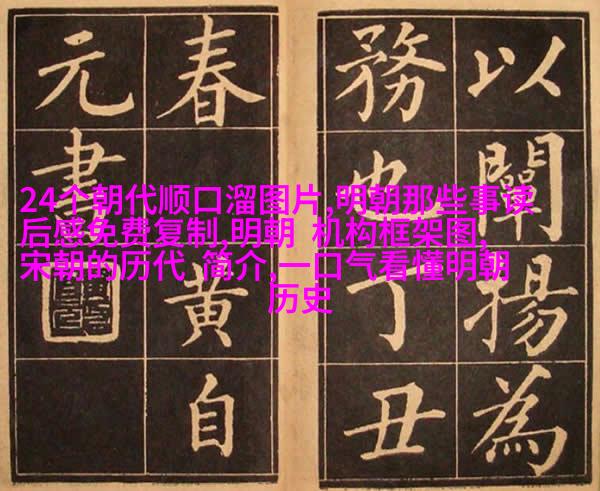 以闡揚為
務也丁丑
春黄自
元書
24个朝代顺口溜图片,明朝那些事读
后感免费复制,明朝 机构框架图,
宋朝的历代 简介,一口气看懂明朝
历史